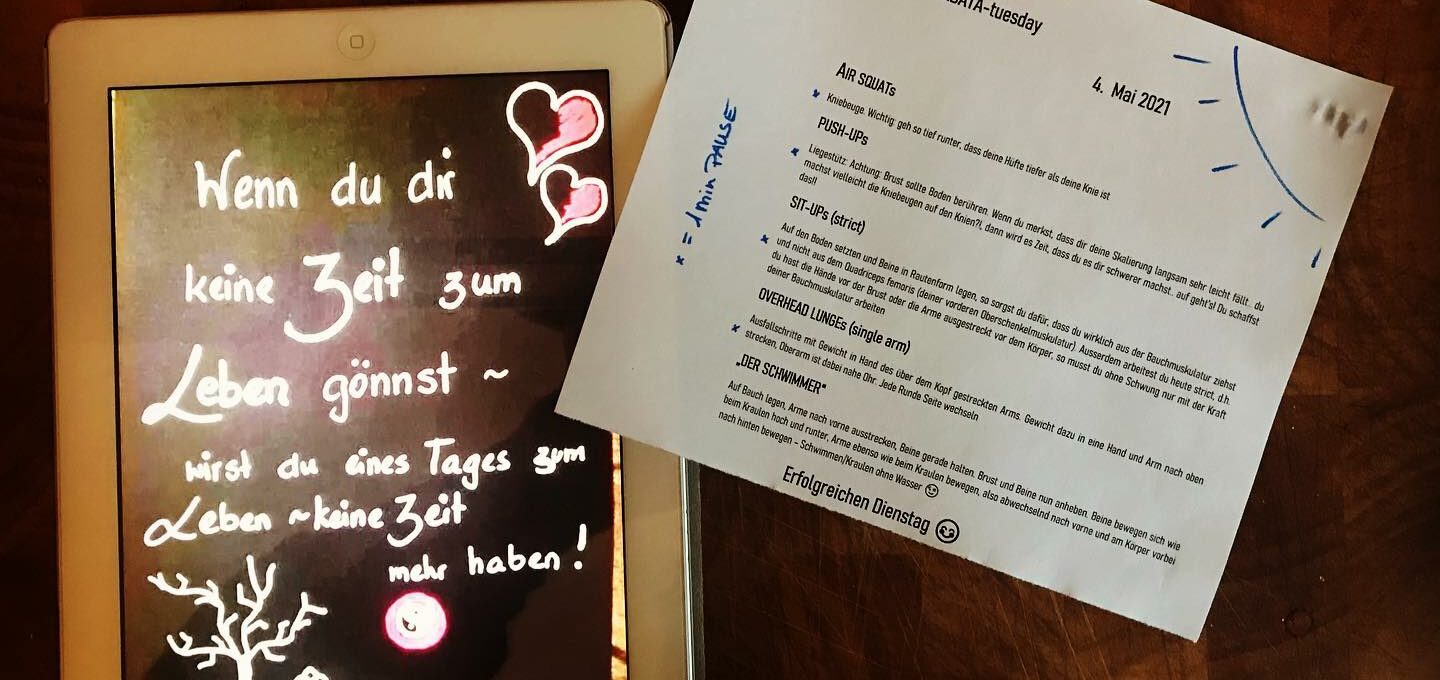 Wenn du dir
keine Zeit zum
Leben gönnst ~
wirst du eines Tages zum
Leben ~ keine Zeit
mehr haben!
TABATA-tuesday
4. Mai 2021
AIR SQUATs
Kniebeuge. Wichtig: geh so tief runter, dass deine Hüfte tiefer als deine Knie ist
PUSH-UPs
Liegestütz: Achtung: Brust sollte Boden berühren. Wenn du merkst, dass dir deine Skalierung langsam sehr leicht fällt... du
machst vielleicht die Kniebeugen auf den Knien?!, dann wird es Zeit, dass du es dir schwerer machst.. auf geht's! Du schaffst
das!!
SIT-UPs (strict)
Auf den Boden setzten und Beine in Rautenform legen, so sorgst du dafür, dass du wirklich aus der Bauchmuskulatur ziehst
und nicht aus dem Quadriceps femoris (deiner vorderen Oberschenkelmuskulatur). Ausserdem arbeitest du heute strict, d.h.
du hast die Hände vor der Brust oder die Arme ausgestreckt vor dem Körper, so musst du ohne Schwung nur mit der Kraft
deiner Bauchmuskulatur arbeiten
OVERHEAD LUNGEs (single arm)
Ausfallschritte mit Gewicht in Hand des über dem Kopf gestreckten Arms. Gewicht dazu in eine Hand und Arm nach oben
strecken, Oberarm ist dabei nahe Ohr. Jede Runde Seite wechseln
„DER SCHWIMMER“
Auf Bauch legen, Arme nach vorne ausstrecken, Beine gerade halten. Brust und Beine nun anheben. Beine bewegen sich wie
beim Kraulen hoch und runter, Arme ebenso wie beim Kraulen bewegen, also abwechselnd nach vorne und am Körper vorbei
nach hinten bewegen – Schwimmen/Kraulen ohne Wasser 😉
Erfolgreichen Dienstag 😉
* = 1 min PAUSE